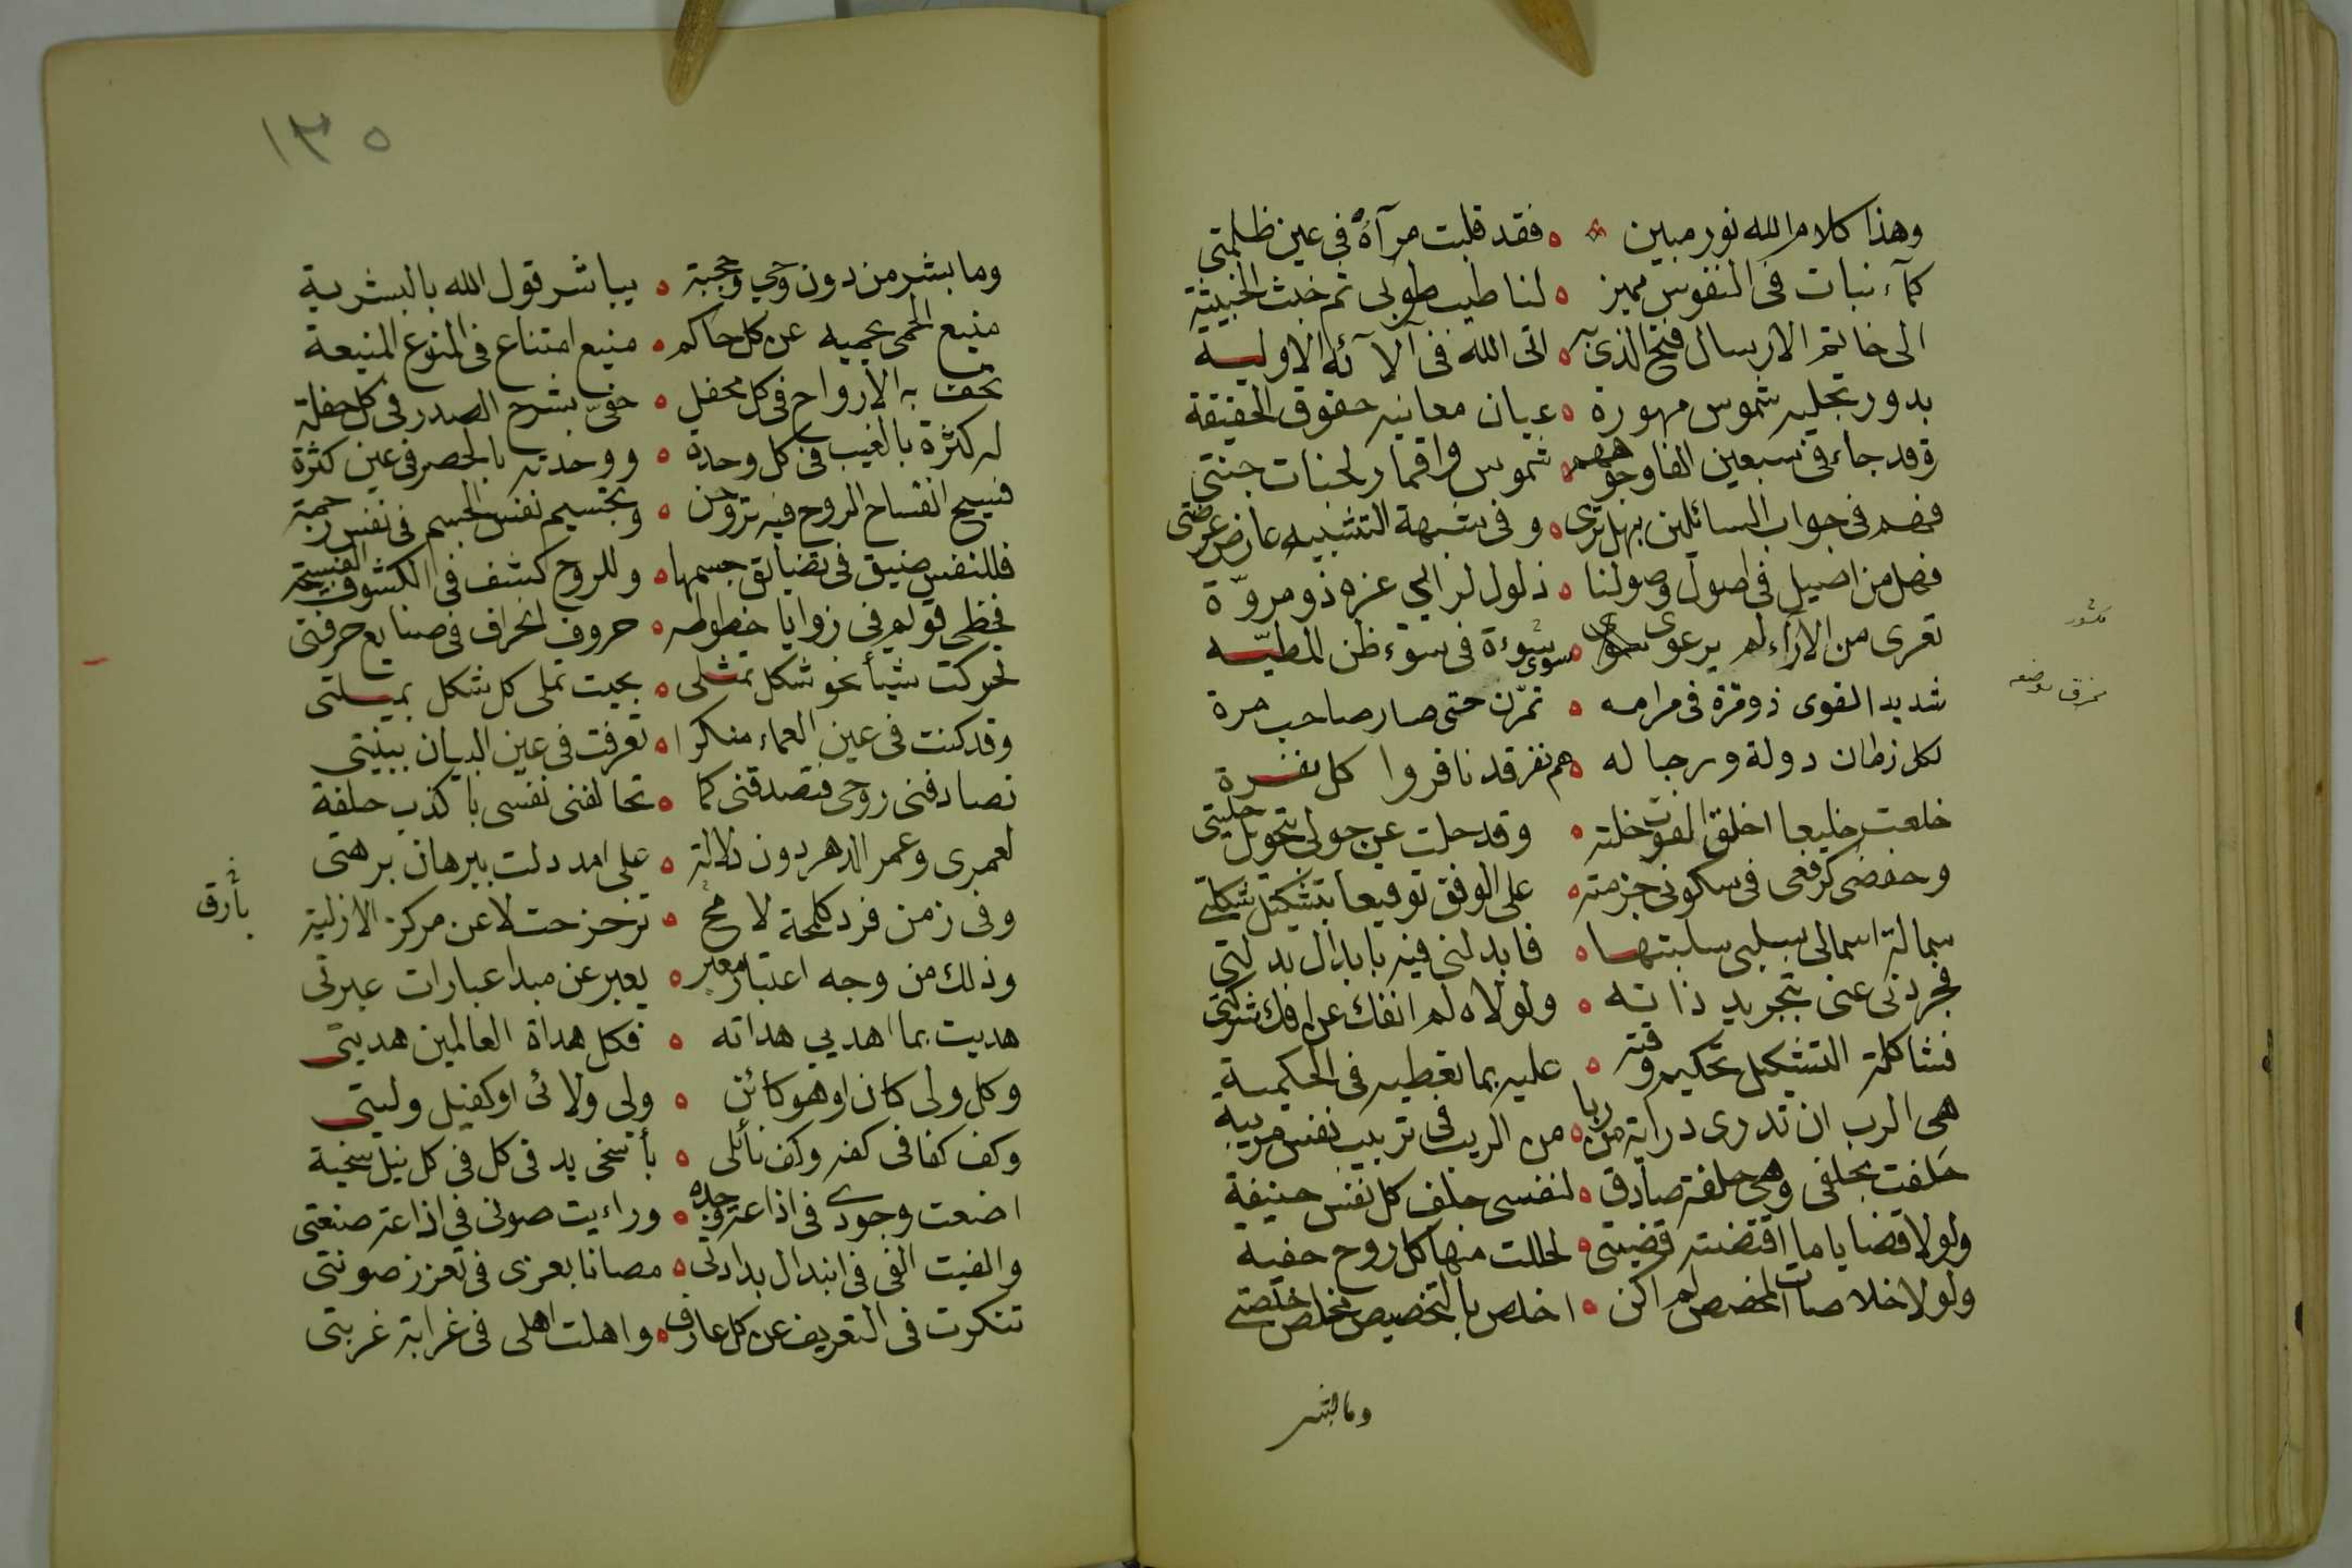 وهذا كلام الله نور مبين ۞ فقد قلبت مرآة في عين ظلمتي
كمآء نبات في النفوس مميز ه لنا طيب طوبى ثم خبث الخبيثة
الى خاتم الارسال فتح الذي به ه اتى الله في آلآئه الاوليه
بدور تجليه شموس مهورة ه عيان معانيه حقوق الحقيقة
وقد جاء في سبعين الفا وجوههم ه شموس واقمار لجنات جنتي
فهم في جواب السائلين بهل ترى ه وفي شبهة التشبيه عارض عرضتى
فصل من اصيل في اصول وصولنا ه ذلول لراجي عزه ذو مروّة
تعرى من الآراء لم يرعوى سوى ه سوءة في سوء ظن المطيّه
شديد القوى ذو قرة في مرامه ه تمرّن حتى صار صاحب مرة
لكل زمان دولة ورجاله ه هم نفر قد نافروا كل نفرة
خلعت خليعا اخلق الفوت خلته ه وقد حلت عن حولى بتحويل حليتى
وخفضى كرفعى في سكونى جزمته ه على الوفق توقيعا بتشكيل شكلتى
سمالة اسمالى بسلبى سلبتها ه فابدلنى فيه بابدال بدلتى
فجردنى عنى بتجريد ذاته ه ولولاه لم انفك عن افك شركتى
فشاكلة التشكيل تحكيم وقته ه عليه بما تعطيه في الحكمية
هى الرب ان تدرى دراية من ربا ه من الريب في تربيب نفس مربية
حلفت بحلفى وهى حلفة صادق ه لنفسى حلف كل نفس حنيفة
ولولا قضايا ما اقتضته قضيتى ه لحللت منها كل روح حفية
ولولا خلاصات المخصص لم اكن ه اخلص بالتخصيص مخلص خلصتى
وما بشر
مكسور
١٣٥
وما بشر من دون وحي وحجبة ه يباشر قول الله بالبشرية
منيع الحمى يحميه عن كل حاكم ه منيع امتناع في المنوع المنيعة
تحف به الارواح في كل محفل ه حفىّ بشرح الصدر في كل حفلة
له كثرة بالغيب في كل وحدة ه ووحدته بالحصر في عين كثرة
فسيح انفساح الروح فيه تروحن ه وتجسيم نفس الجسم في نفس زحمة
فللنفس ضيق في تضايق جسمها ه وللروح كشف في الكشوف الفسيحة
فخطى قويم في زوايا خطوطه ه حروف انحراف في صنايع حرفتى
تحركت شيأ نحو شكل تمثلى ه بحيت تملى كل شكل بميلتى
وقد كنت في عين العماء منكرا ه تعرفت في عين البيان ببينتي
تصادفنى روحى فتصدقنى كما ه تحالفنى نفسى باكذب حلفة
لعمرى وعمر الدهر دون دلالة ه على امد دلت ببرهان برهتى
وفي زمن فرد كلمحة لامح ه تزحزحت لا عن مركز الازلية
وذلك من وجه اعتبار معبر ه يعبر عن مبدا عبارات عبرتى
هديت بما اهديي هداته ه فكل هداة العالمين هديتى
وكل ولى كان او هو كائن ه ولى ولائى او كفيل وليتى
وكف كفا في كفه وكف نأئلى ه بأ سخى يد في كل في كل نيل سخية
اضعت وجودى في اذاعة وجده ه وراءيت صونى في اذاعة صنعتى
والفيت الفى في ابتذال بدادتى ه مصانا بعزى في تعزز صونتى
تنكرت في التعريف عن كل عارف ه واهلت اهلى في غرابة غربتى
بأرق